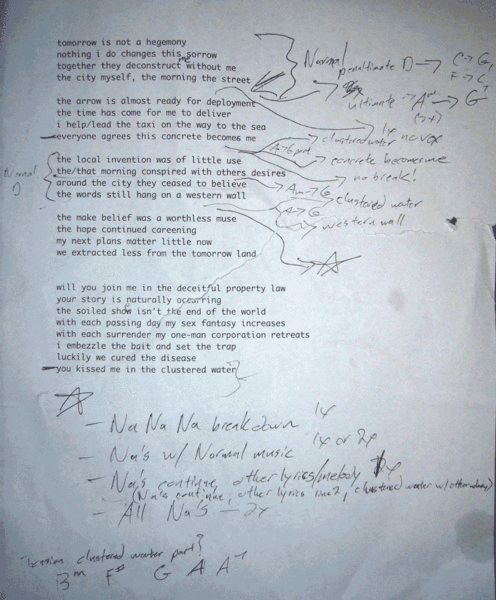 tomorrow is not a hegemony
nothing i do changes this sorrow
together they deconstruct without me
the city myself, the morning the street
Normal
penultimate D → C → G,
F → C
ultimate → Am → G
the arrow is almost ready for deployment
the time has come for me to deliver
i help/lead the taxi on the way to the sea
everyone agrees this concrete becomes me
1x
clustered water no vox
A → G part
concrete becomes me
no break!
Normal
D
the local invention was of little use
the/that morning conspired with others desires
around the city they ceased to believe
the words still hang on a western wall
Am → G
clustered water
A → G
western wall
the make belief was a worthless muse
the hope continued careening
my next plans matter little now
we extracted less from the tomorrow land
will you join me in the deceitful property law
your story is naturally ocurring
the soiled show isn't the end of the world
with each passing day my sex fantasy increases
with each surrender my one-man corporation retreats
i embezzle the bait and set the trap
luckily we cured the disease
you kissed me in the clustered water
– Na Na Na breakdown 1x
– Na's w/ Normal music 1x or 2x
– Na's continue, other lyrics/melody
(Na's continue, other lyrics line 2, clustered water w/
– All Na's – 2x
clustered water part?
Bm F# G A A7